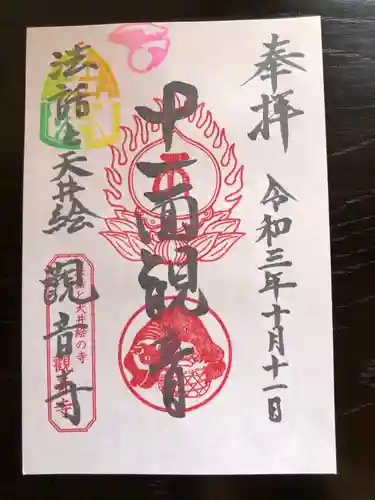 奉拝
令和三年十月十一日
十一面観音
法話と天井絵
観音寺
法話と天井絵の寺
観音寺